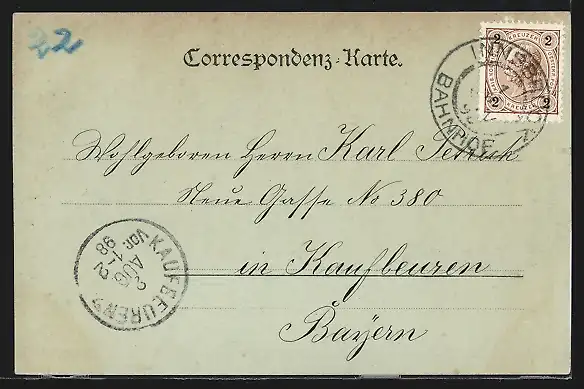 22
Correspondenz-Karte.
2 KREUZER 2
2 KREUZER 2
INNSBRUCK
BAHNHOF
Wohlgeboren Herrn Karl
Neue Gasse No 380
in Kaufbeuren
Bayern
KAUFBEUREN
2 AUG
VOR. 1-2
98